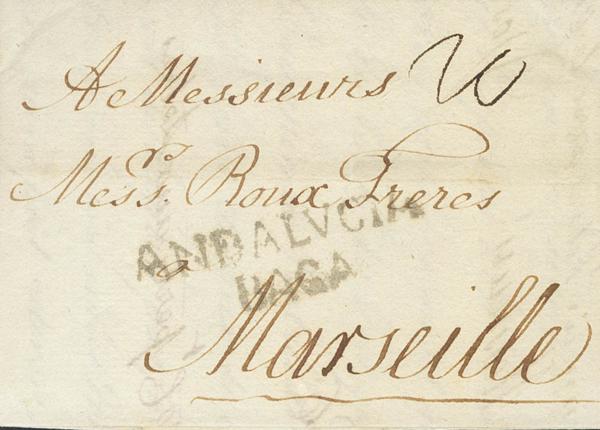 A Messieurs
Messrs. Roux Freres
ANDALVCIA
BAGA
a
Marseille